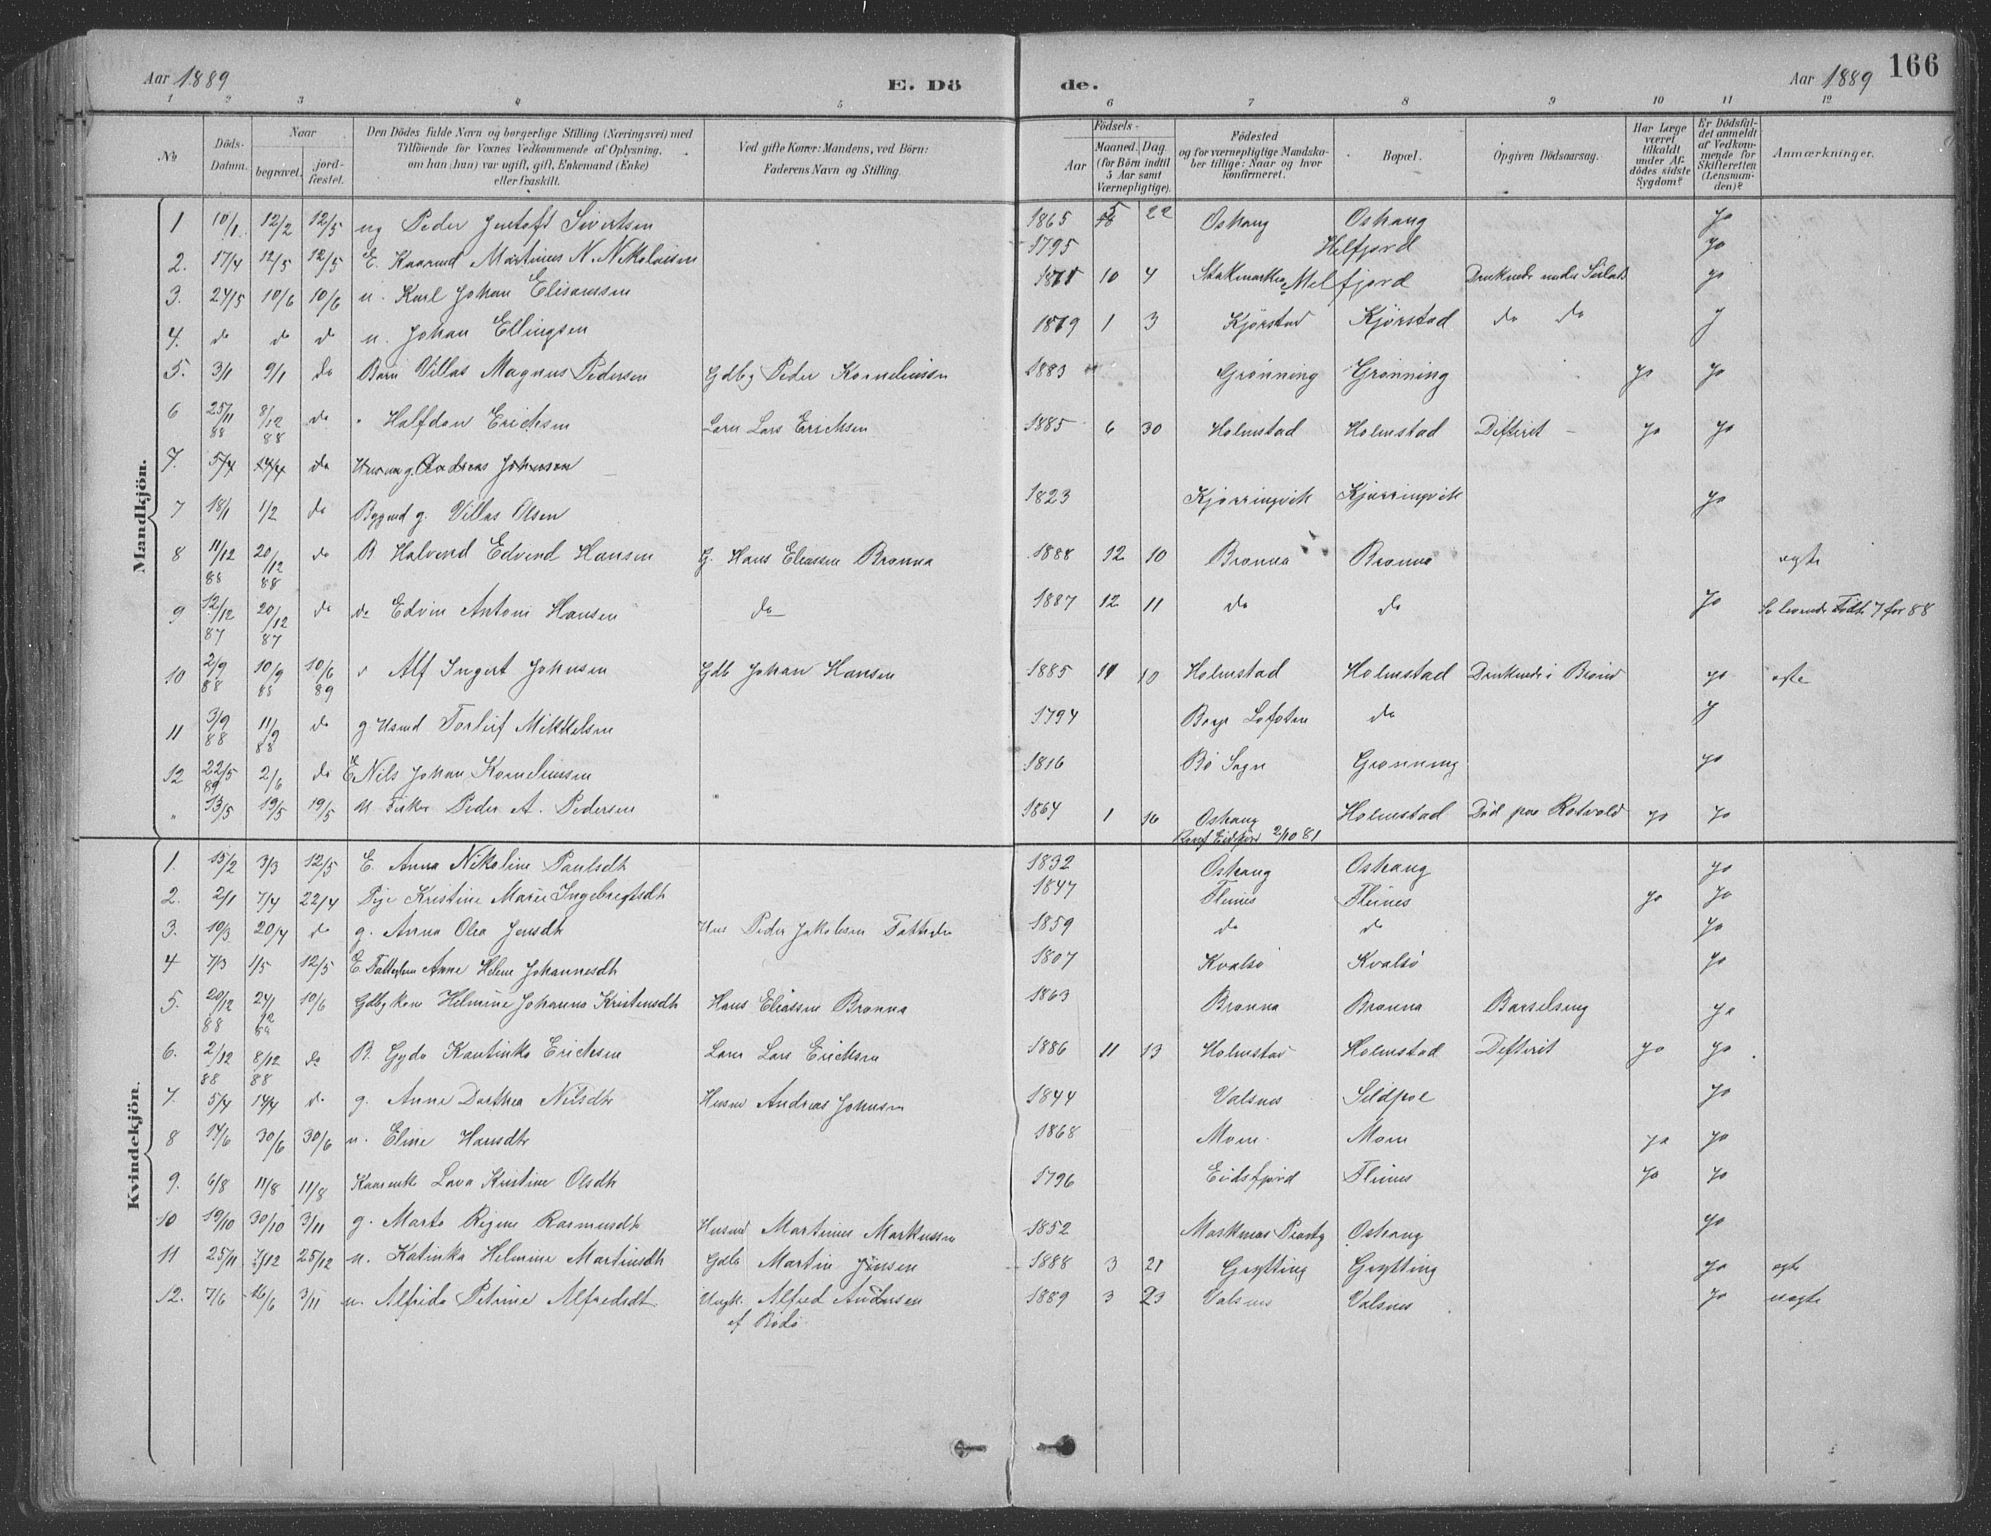 Aar 1889
E. Dö
de.
Aar 1889
166
1 2 3 4 5 6 7 8 9 10 11 12
No
Döds-Datum.
Naar
begravet.
jord-fæstet.
Den Dödes fulde Navn og borgerlige Stilling (Næringsvei) med
Tilföiende for Voxnes Vedkommende af Oplysning,
om han (hun) var ugift, gift, Enkemand (Enke)
eller fraskilt.
Ved gifte Koner: Mandens, ved Börn:
Faderens Navn og Stilling.
Födsels-
Aar
Maaned. Dag
(for Börn indtil
5 Aar samt
Værnepligtige).
Födested
og for værnepligtige Mandska-
ber tillige: Naar og hvor
konfirmeret.
Bopæl.
Opgiven Dödsaarsag.
Har Læge
været
tilkaldt
under Af-
dödes sidste
Sygdom?
Er Dödsfal-
det anmeldt
af Vedkom-
mende for
Skifteretten
(Lensman-
den)?
Anmærkninger.
Mandkjön.
1 10/1 12/2 12/5 ug Peder Sivertsen 1865 5 22 Oshaug Oshaug Jo
2. 17/4 12/5 12/5 E. Martinus N. Nikolaisen 1795 Melfjord Jo
3. 24/5 10/6 10/6 u. Karl Johan Elisæussen 10 4 Melfjord Jo
4. do do do u. Johan Ellingsen 1869 1 3 Kjørstad Kjørstad do do J
5. 3/1 9/1 do Barn Villas Magnus Pedersen Gdbg Peder Korneliussen 1883 Grønning Grønning Jo Jo
6 25/11 88 8/12 88 do " Halfdan Erichsen Lars Erichsen 1885 6 30 Holmstad Holmstad Difterit Jo Jo
7. 5/4 14/4 do Andreas Johnsen
7 18/1 1/2 do g. Villas Olsen 1823 Kjørringvik Kjørringvik Jo
8 11/12 88 20/12 88 do B Halvard Edvind Hansen G. Hans Eliassen Brønna 1888 12 10 Brønna Brønna ægte
9 12/12 87 20/12 87 do do Edvin Antoni Hansen do 1887 12 11 do do Jo Se levende Fødte 7 for 88
10 2/9 88 10/9 88 10/6 89 Alf Ingert Johnsen Gdb Johan Hansen 1885 11 10 Holmstad Holmstad Druknede i Brønd Jo ægte
11 3/9 88 11/9 88 do g. Husmd Torleif Mikkelsen 1794 Lofoten do J
12 22/5 89 2/6 do E Nils Johan Korneliussen 1816 Bø Sogn Grønning Jo
" 13/5 19/5 19/5 u. Fisker Peder A. Pedersen 1864 1 16 Oshaug Holmstad Død paa Rotvold Jo Jo
Konf Eidsfjord 2/10 81
Kvindekjön.
1. 15/2 3/3 12/5 E. Anna Nikoline Paulsdtr 1832 Oshaug Oshaug Jo
2. 2/1 7/4 22/4 Pige Kristine Marie Ingebregtsdtr 1847 Fleines Fleines Jo Jo
3. 10/3 20/4 do g. Anna Olea Jensdtr Peder Jakobsen 1859 do do Jo
4 7/3 1/5 12/5 E. Anne Helene Johannesdtr 1807 Kvalsø Kvalsø Jo
5. 20/12 88 24/12 88 10/6 Gdbg kone Helmine Johanna Kristensdtr Hans Eliassen Brønna 1863 Brønna Brønna Barselseng Ja
6. 2/12 88 8/12 88 do B. Gyda Kantinka Erichsen Lars Erichsen 1886 11 13 Holmstad Holmstad Difterit Jo Jo
7. 5/4 14/4 do g. Anne Dorthea Nilsdtr Husmd Andreas Johnsen 1844 Valsnes Sildpol Jo
8 17/6 30/6 30/6 u. Eline Hansdtr 1868 Moen Moen Jo Jo
9. 6/8 11/8 11/8 Lava Kristine Olsdtr 1796 Eidsfjord Fleines Jo Jo
10 19/10 30/10 3/11 g. Marta Regine Rasmusdtr Husmd Martinus Markussen 1852 Oshaug Jo
11 25/11 7/12 25/12 u. Katinka Helmine Martinsdtr Gdb Martin Jensen 1888 3 21 Grytting Grytting Jo ægte
12. 7/6 16/6 3/11 u. Alfrida Petrine Alfredsdtr Ungk. Alfred Andersen 1889 3 23 Valsnes Valsnes Jo uægte
af Bodø